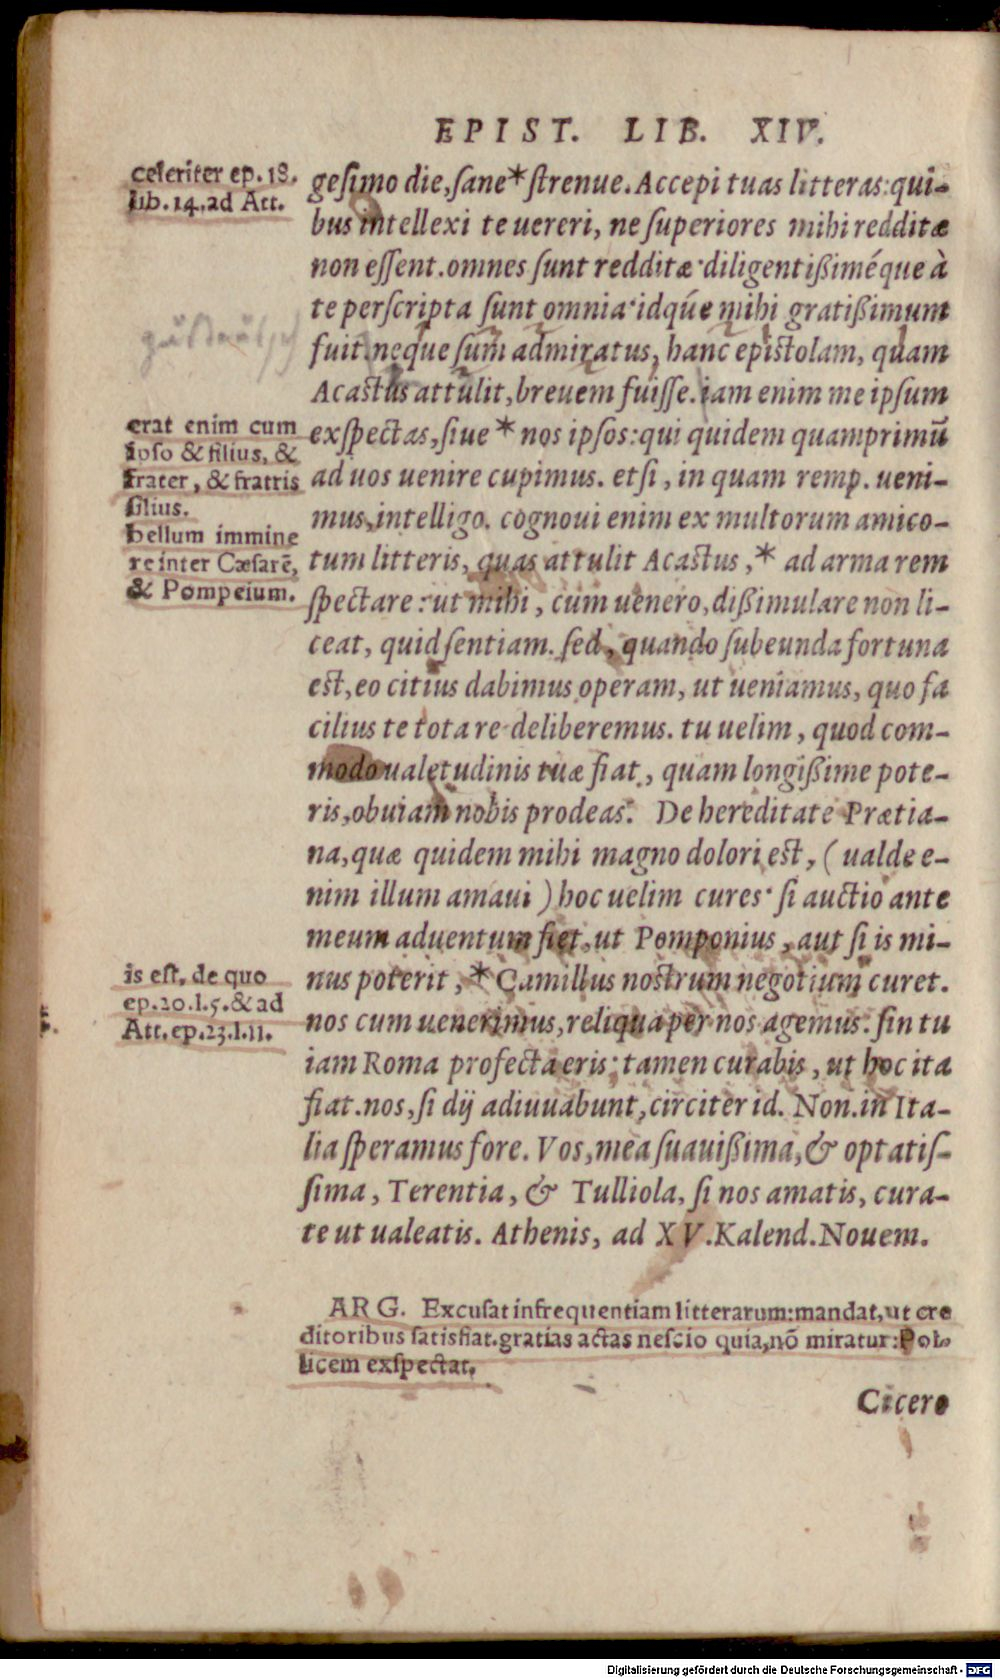 EPIST. LIB. XIV.
celeriter ep. 18.
lib. 14. ad Att.
gesimo die, sane * strenue. Accepi tuas litteras: qui-
bus intellexi te uereri, ne superiores mihi redditæ
non essent. omnes sunt redditæ· diligentißiméque à
te perscripta sunt omnia· idq́ue mihi gratißimum
fuit. neque sum admiratus, hanc epistolam, quam
Acastus attulit, breuem fuisse. iam enim me ipsum
exspectas, siue * nos ipsos: qui quidem quamprimū
ad uos uenire cupimus. etsi, in quam remp. ueni-
mus, intelligo. cognoui enim ex multorum amico-
tum litteris, quas attulit Acastus, * ad arma rem
spectare: ut mihi, cum uenero, dißimulare non li-
ceat, quid sentiam. sed, quando subeunda fortuna
est, eo citius dabimus operam, ut ueniamus, quo fa
cilius te tota re deliberemus. tu uelim, quod com-
modo ualetudinis tuæ fiat, quam longißime pote-
ris, obuiam nobis prodeas. De hereditate Prætia-
na, quæ quidem mihi magno dolori est, (ualde e-
nim illum amaui) hoc uelim cures· si auctio ante
meum aduentum fiet, ut Pomponius, aut si is mi-
nus poterit, * Camillus nostrum negotium curet.
nos cum uenerimus, reliqua per nos agemus: sin tu
iam Roma profecta eris; tamen curabis, ut hoc ita
fiat. nos, si dij adiuuabunt, circiter id. Non. in Ita-
lia speramus fore. Vos, mea suauißima, & optatis-
sima, Terentia, & Tulliola, si nos amatis, cura-
te ut ualeatis. Athenis, ad XV. Kalend. Nouem.
erat enim cum
ipso & filius, &
frater, & fratris
filius.
bellum immine
re inter Cæsarē,
& Pompeium.
is est, de quo
ep. 20. l. 5. & ad
Att. ep. 23. l. 11.
ARG. Excusat infrequentiam litterarum: mandat, ut cre
ditoribus satisfiat. gratias actas nescio quia, nō miratur: Pol-
licem exspectat.
Cicero
Digitalisierung gefördert durch die Deutsche Forschungsgemeinschaft - DFG